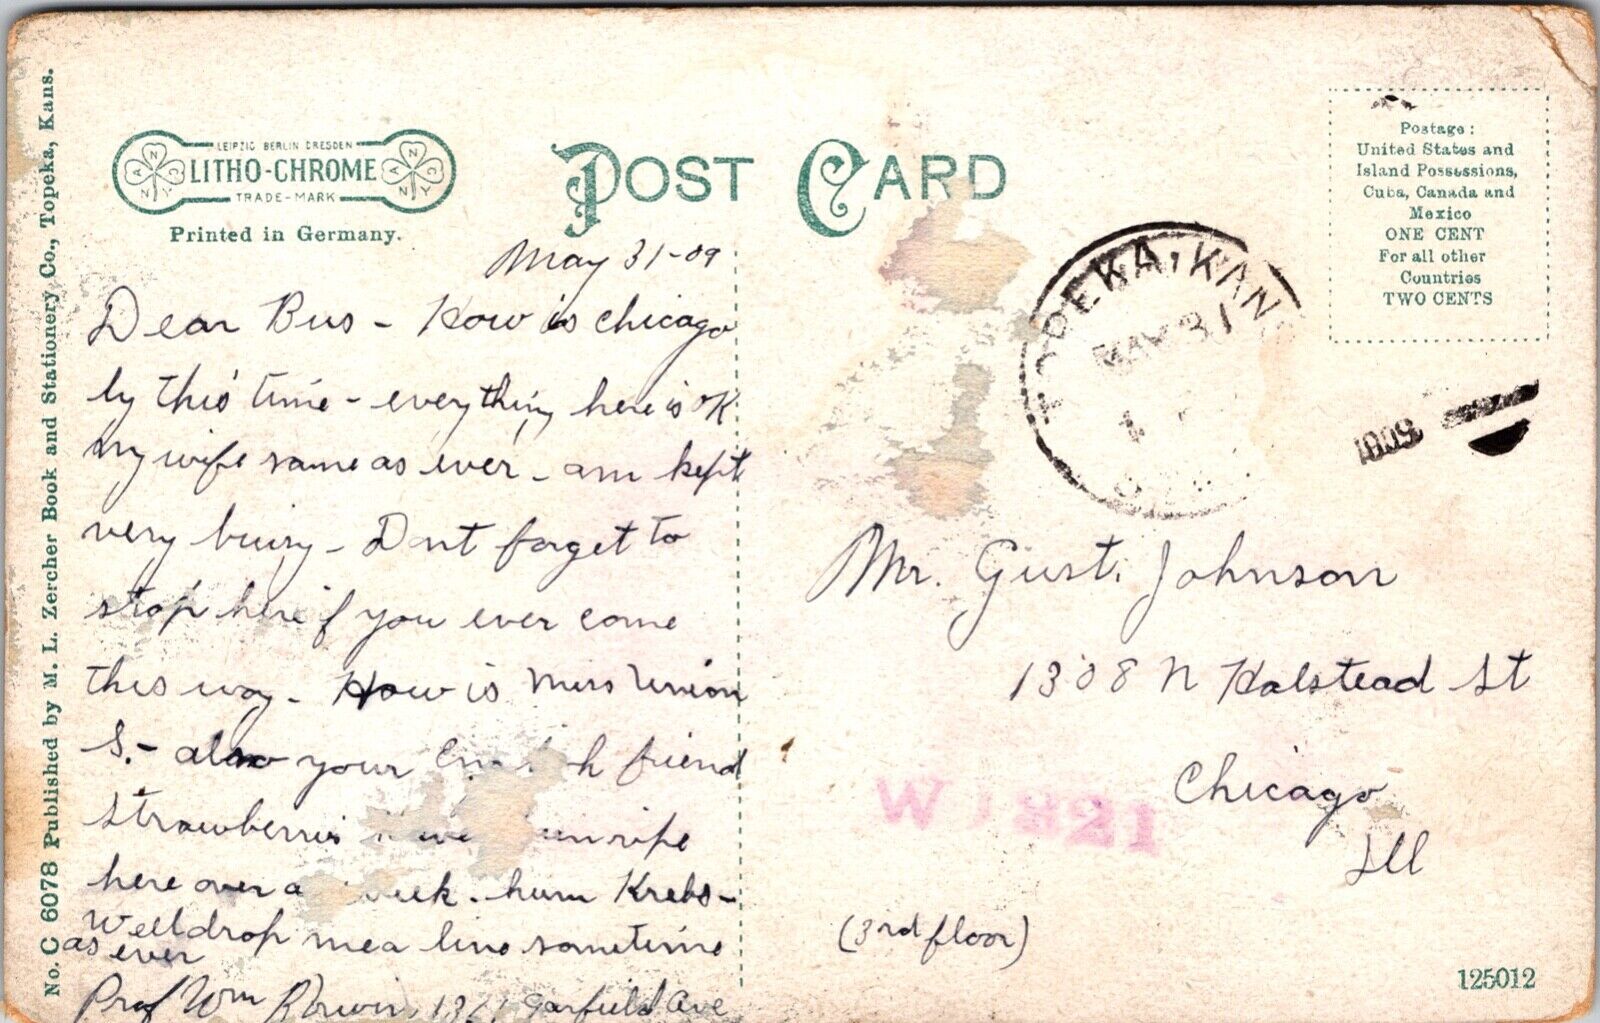 No. C 6078 Published by M. L. Zercher Book and Stationery Co., Topeka, Kans.
LEIPZIG BERLIN DRESDEN
LITHO-CHROME
TRADE-MARK
Printed in Germany.
POST CARD
Postage:
United States and
Island Possessions,
Cuba, Canada and
Mexico
ONE CENT
For all other
Countries
TWO CENTS
TOPEKA, KAN
MAY 31
1909
May 31-09
Dear Bus - How is Chicago
by this time - everything here is OK
My wife same as ever - am kept
very busy - Dont forget to
stop here if you ever come
this way - How is Miss
S. - also your friend
Strawberries ripe
here over a week - hum Krebs -
Well drop me a line sometime
as ever
Prof Wm Garfield Ave
Mr. Gust. Johnson
1308 N Halstead St
Chicago
Ill
(3rd floor)
125012